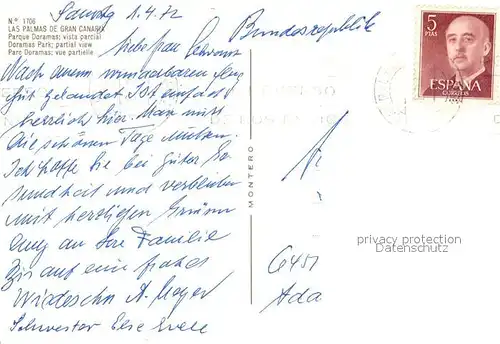 Nº 1706
LAS PALMAS DE GRAN CANARIA
Parque Doramas; vista parcial
Doramas Park; partial view
Parc Doramas; vue partielle
Samstag 1.4.72
Bundesrepublik
5
PTAS
ESPAÑA
CORREOS
Liebe Frau
Nach einem wunderbaren Flug
gut gelandet Ist einfach
herrlich hier. Man muß
die schönen Tage nutzen.
Ich hoffe Sie bei guter Ge
sundheit und verbleiben
mit herzlichen Grüßen
auch an Ihre Familie
Bis auf ein frohes
Wiedersehn A. Mayer
Schwester Else
MONTERO
6451
Ada
privacy protection
Datenschutz